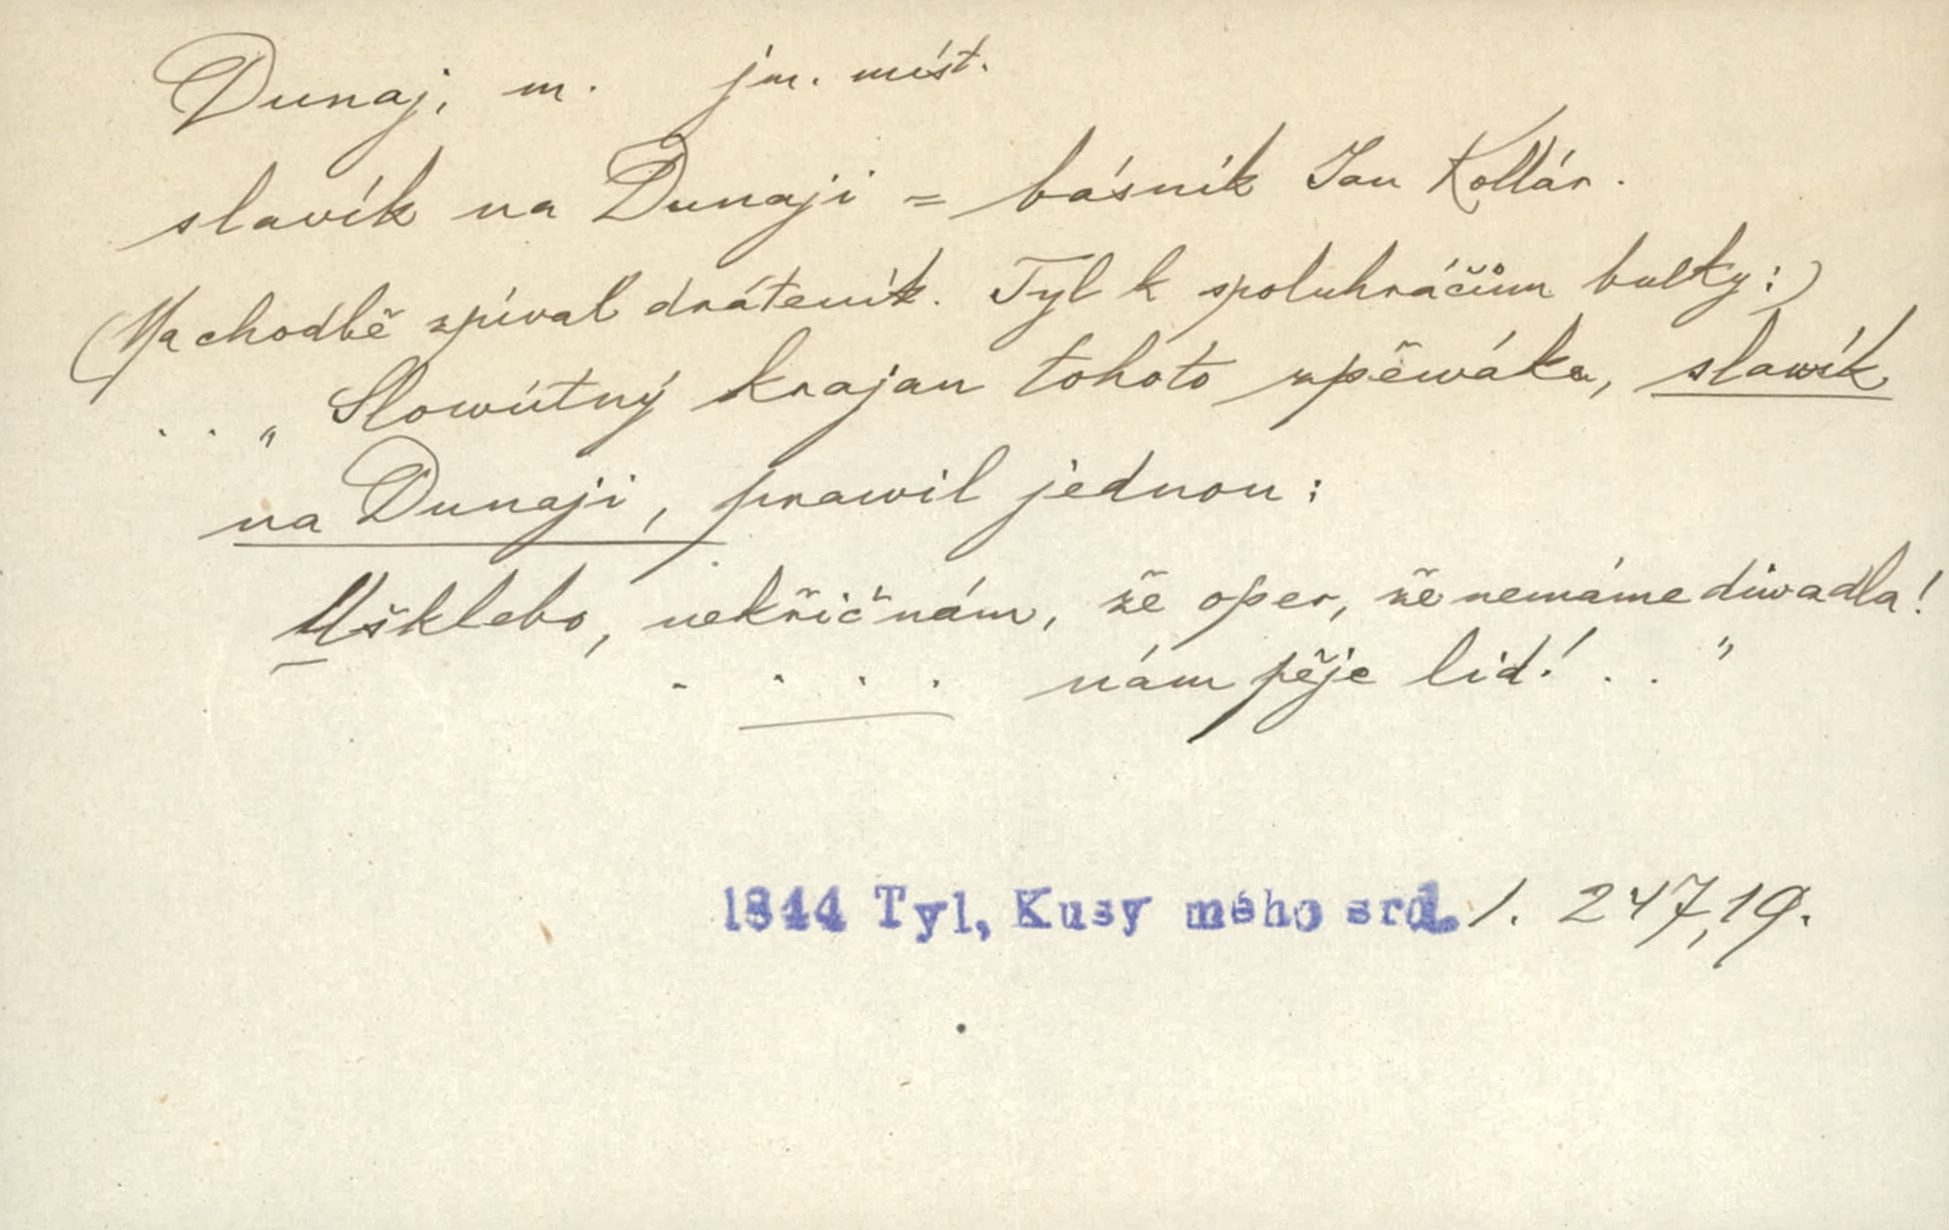 Dunaj, m. jm. míst.
slavík na Dunaji = básník Jan Kollár.
(Na chodbě zpíval dráteník. Tyl k spoluhráčům bulky:)
. . „Slowútný krajan tohoto zpěwáka, slawík
na Dunaji, prawil jednou:
Ušklebo, nekřič nám, že oper, že nemáme diwadla!
. . . . nám pěje lid! . . "
1844 Tyl, Kusy mého srd. 1. 247,19.